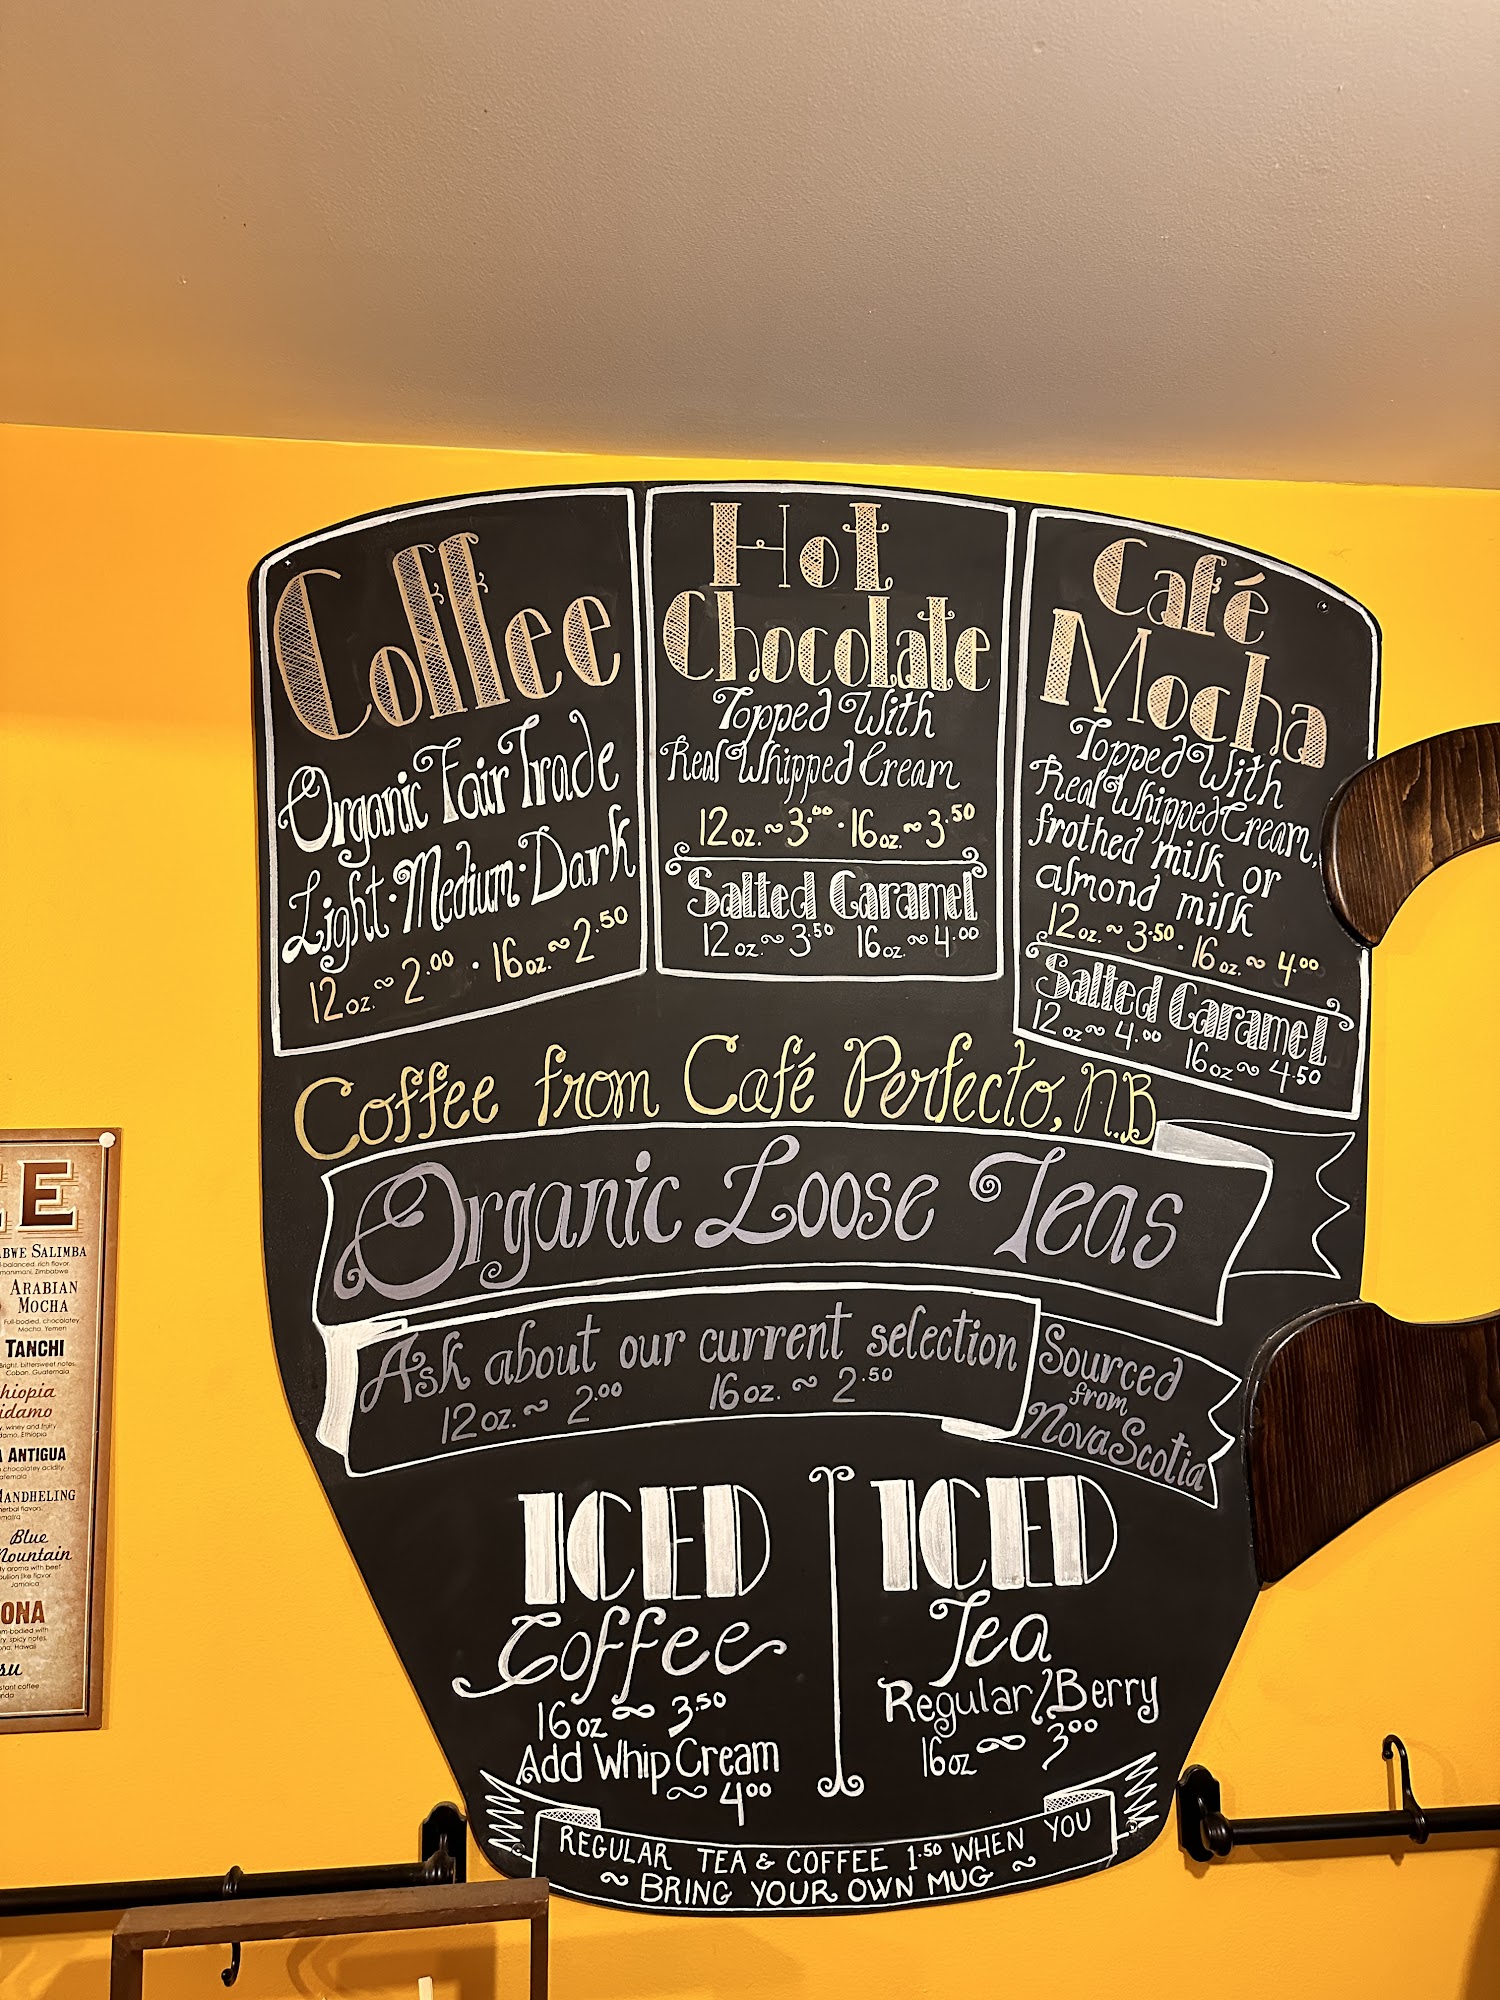 Coffee
Organic Fair Trade
Light · Medium · Dark
12oz. ~ 2.00 · 16oz. ~ 2.50
Hot
Chocolate
Topped With
Real Whipped Cream
12oz. ~ 3.00 · 16oz. ~ 3.50
Salted Caramel
12oz. ~ 3.50 16oz. ~ 4.00
Café
Mocha
Topped With
Real Whipped Cream,
frothed milk or
almond milk
12oz. ~ 3.50 · 16oz. ~ 4.00
Salted Caramel
12oz ~ 4.00
16oz ~ 4.50
Coffee from Café Perfecto, N.B
Organic Loose Teas
Ask about our current selection
12oz. ~ 2.00 16oz. ~ 2.50
Sourced
from
Nova Scotia
ICED
Coffee
16oz ~ 3.50
Add Whip Cream
~ 4.00
ICED
Tea
Regular/Berry
16oz ~ 3.00
REGULAR TEA & COFFEE 1.50 WHEN YOU
~ BRING YOUR OWN MUG ~
E
SALIMBA
ARABIAN
MOCHA
Full-bodied, chocolatey,
Mocha, Yemen
TANCHI
bittersweet notes
Coban, Guatemala
winey and fruity
Ethiopia
ANTIGUA
chocolatey acidity
Blue
aroma with beef-
flavor
Jamaica
ONA
spicy notes
Hawaii
coffee